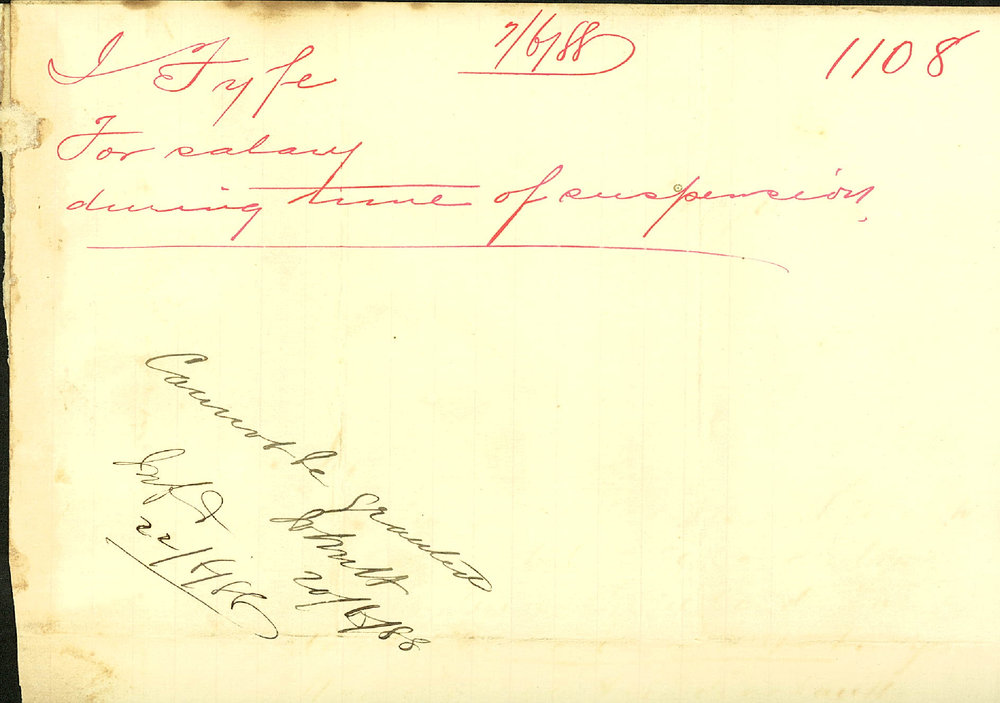 7/6/88
1108
J Fyfe
For salary
during time of suspension.
Cannot be granted
20/6/88
Infd
22/6/88